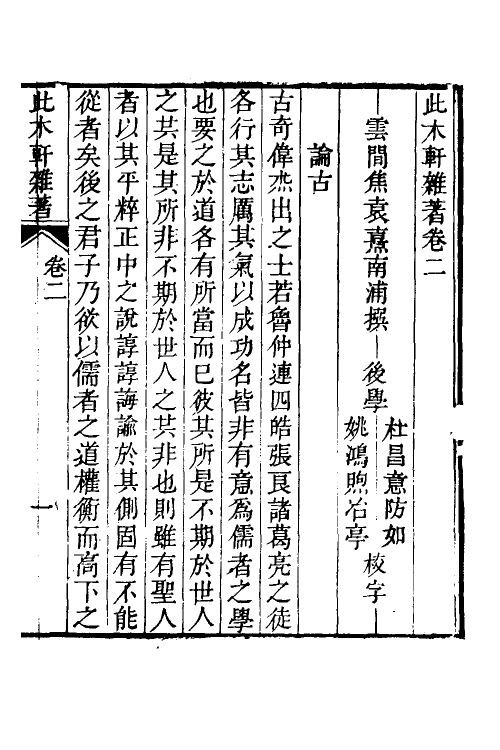 此木軒雜著卷二
雲間焦袁熹南浦撰　後學
杜昌意防如
姚鴻煦冶亭
校字
論古
古奇偉杰出之士若魯仲連四皓張良諸葛亮之徒
各行其志厲其氣以成功名皆非有意為儒者之學
也要之於道各有所當而已彼其所是不期於世人
之共是其所非不期於世人之共非也則雖有聖人
者以其平粹正中之說諄諄誨諭於其側固有不能
從者矣後之君子乃欲以儒者之道權衡而高下之
此木軒雜著
卷二
一